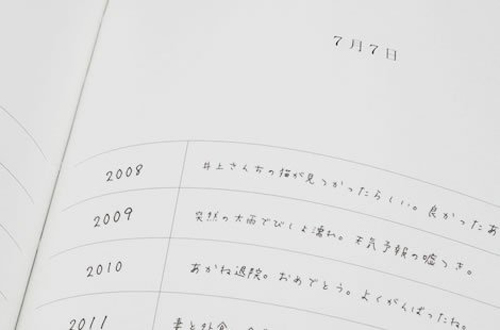 7月7日
2008 井上さんちの猫が見つかったらしい。良かったあ
2009 突然の大雨でびしょ濡れ。天気予報の嘘つき。
2010 あかね退院。おめでとう。よくがんばったね。
2011 妻と外食。